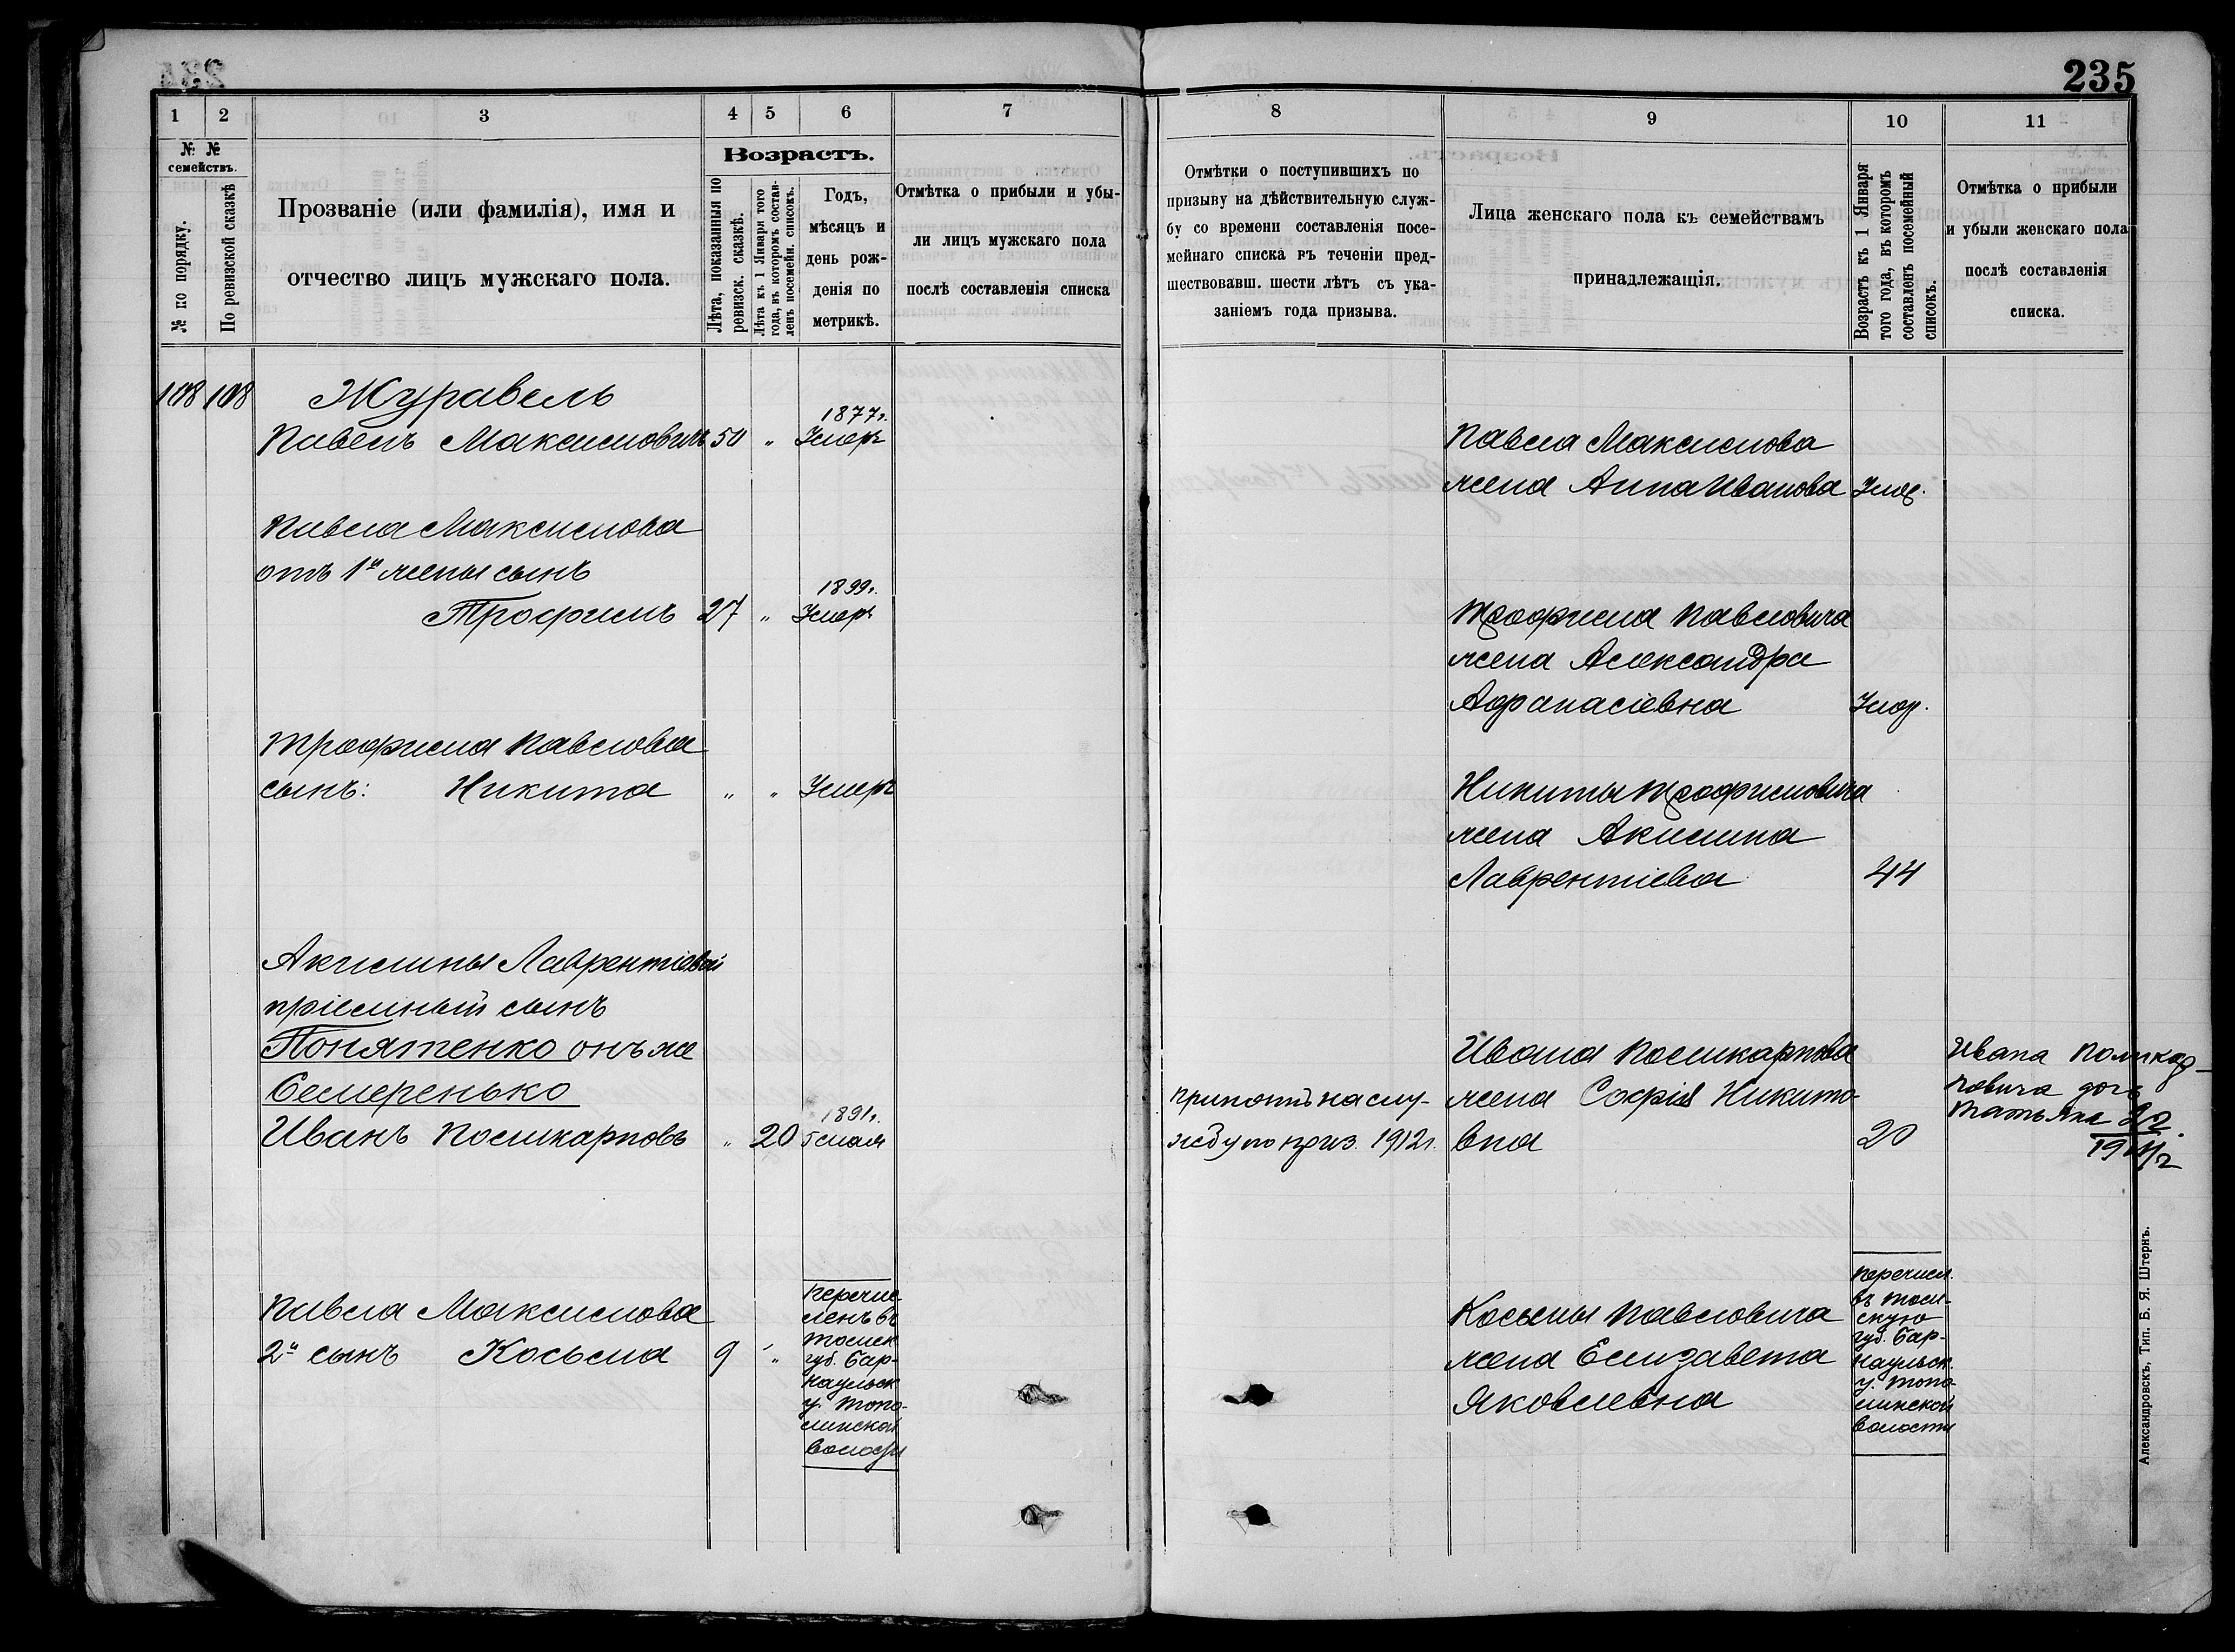 235
1 2 3 4 5 6 7
№ №
семействъ.
№ по порядку.
По ревизской сказкѣ
Прозваніе (или фамилія), имя и
отчество лицъ мужскаго пола.
Возрастъ.
Лѣта, показанныя по
ревизск. сказкѣ.
Лѣта къ 1 Января того
года, въ которомъ состав-
ленъ посемейн. списокъ.
Годъ,
мѣсяцъ и
день рож-
денія по
метрикѣ.
Отмѣтка о прибыли и убы-
ли лицъ мужскаго пола
послѣ составленія списка
108 108 Журавель
1877г.
Павелъ Максимовичъ 50 „ Умеръ
Павла Максимова
отъ 1й жены сынъ
1899г.
Трофимъ 27 „ Умеръ
Трофима Павлова
сынъ: Никита „ „ Умеръ
Акилины Лаврентіевой
пріемный сынъ
Понятенко онъ же
Семеренько
1891г.
Иванъ Поликарповъ „ 20 5 мая
Павла Максимова
2й сынъ Косьма 9 „
перечис
ленъ въ
томск
губ. Бар-
наульск
у. Топо-
линской
волости
8 9 10 11
Отмѣтки о поступившихъ по
призыву на дѣйствительную служ-
бу со времени составленія посе-
мейнаго списка въ теченіи пред-
шествовавш. шести лѣтъ съ ука-
заніемъ года призыва.
Лица женскаго пола къ семействамъ
принадлежащія.
Возрастъ къ 1 Января
того года, въ которомъ
составленъ посемейный
списокъ.
Отмѣтка о прибыли
и убыли женскаго пола
послѣ составленія
списка.
Павла Максимова
жена Анна Иванова Умер.
Трофима Павловича
жена Александра
Афанасіевна Умер.
Никиты Трофимовича
жена Акилина
Лаврентіева 44
Ивана Поликарпова
принятъ на слу- жена Софія Никито-
жбу по приз. 1912г. вна 20
Ивана Поликар-
повича дочь
Татьяна
Косьмы Павловича
жена Елизавета
Яковлевна
перечисл.
въ том-
скую
губ. Бар-
наульск.
у. Топо-
линской
волости
Александровскъ, Тип. Б. Я. Штернъ.